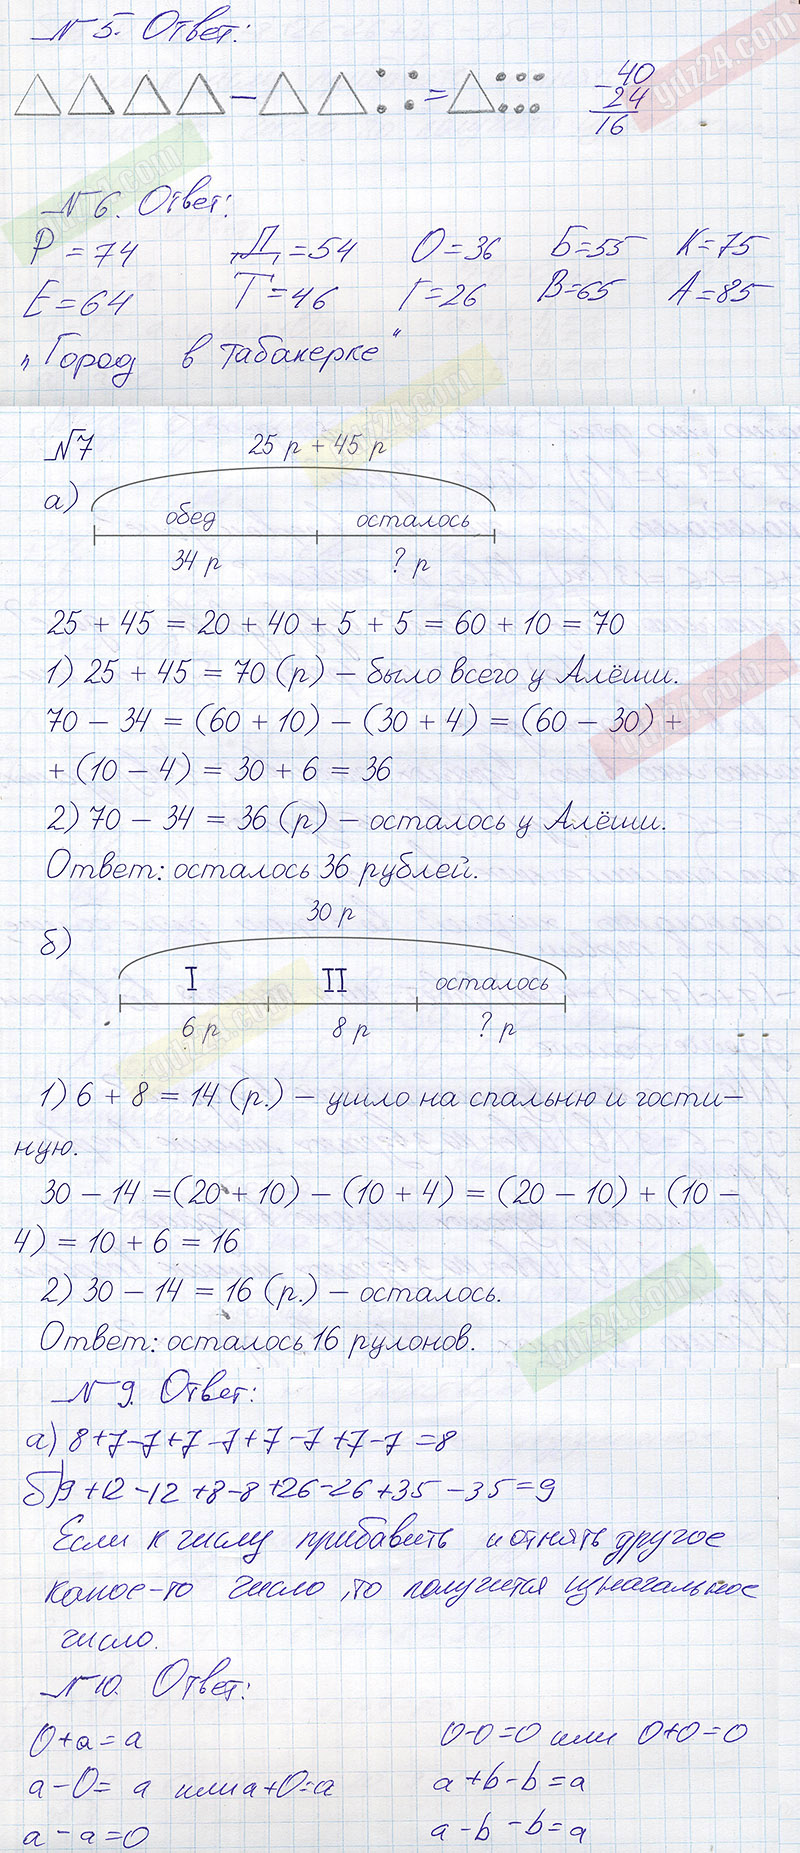 № 5. Ответ:
– =
40
- 24
16
№ 6. Ответ:
Р = 74 Д = 54 О = 36 Б = 55 К = 75
Е = 64 Т = 46 Г = 26 В = 65 А = 85
„Город в табакерке“
№7 25 р + 45 р
а)
обед осталось
34 р ? р
25 + 45 = 20 + 40 + 5 + 5 = 60 + 10 = 70
1) 25 + 45 = 70 (р) – было всего у Алёши.
70 – 34 = (60 + 10) – (30 + 4) = (60 – 30) +
+ (10 – 4) = 30 + 6 = 36
2) 70 – 34 = 36 (р) – осталось у Алёши.
Ответ: осталось 36 рублей.
30 р
б)
I II осталось
6 р 8 р ? р
1) 6 + 8 = 14 (р.) – ушло на спальню и гости–
ную.
30 – 14 = (20 + 10) – (10 + 4) = (20 – 10) + (10 –
4) = 10 + 6 = 16
2) 30 – 14 = 16 (р.) – осталось.
Ответ: осталось 16 рулонов.
№ 9. Ответ:
а) 8+7-7+7-7+7-7+7-7 =8
б) 9 +12 -12 +8-8 +26-26 +35 -35 = 9
Если к числу прибавить и отнять другое
какое-то число, то получится изначальное
число.
№ 10. Ответ:
0+а = а 0-0=0 или 0+0=0
а-0= а или а+0=а а+b-b=а
а - а =0 а -b -b=а
ydz24.com
ydz24.com
ydz24.com
ydz24.com
ydz24.com
ydz24.com